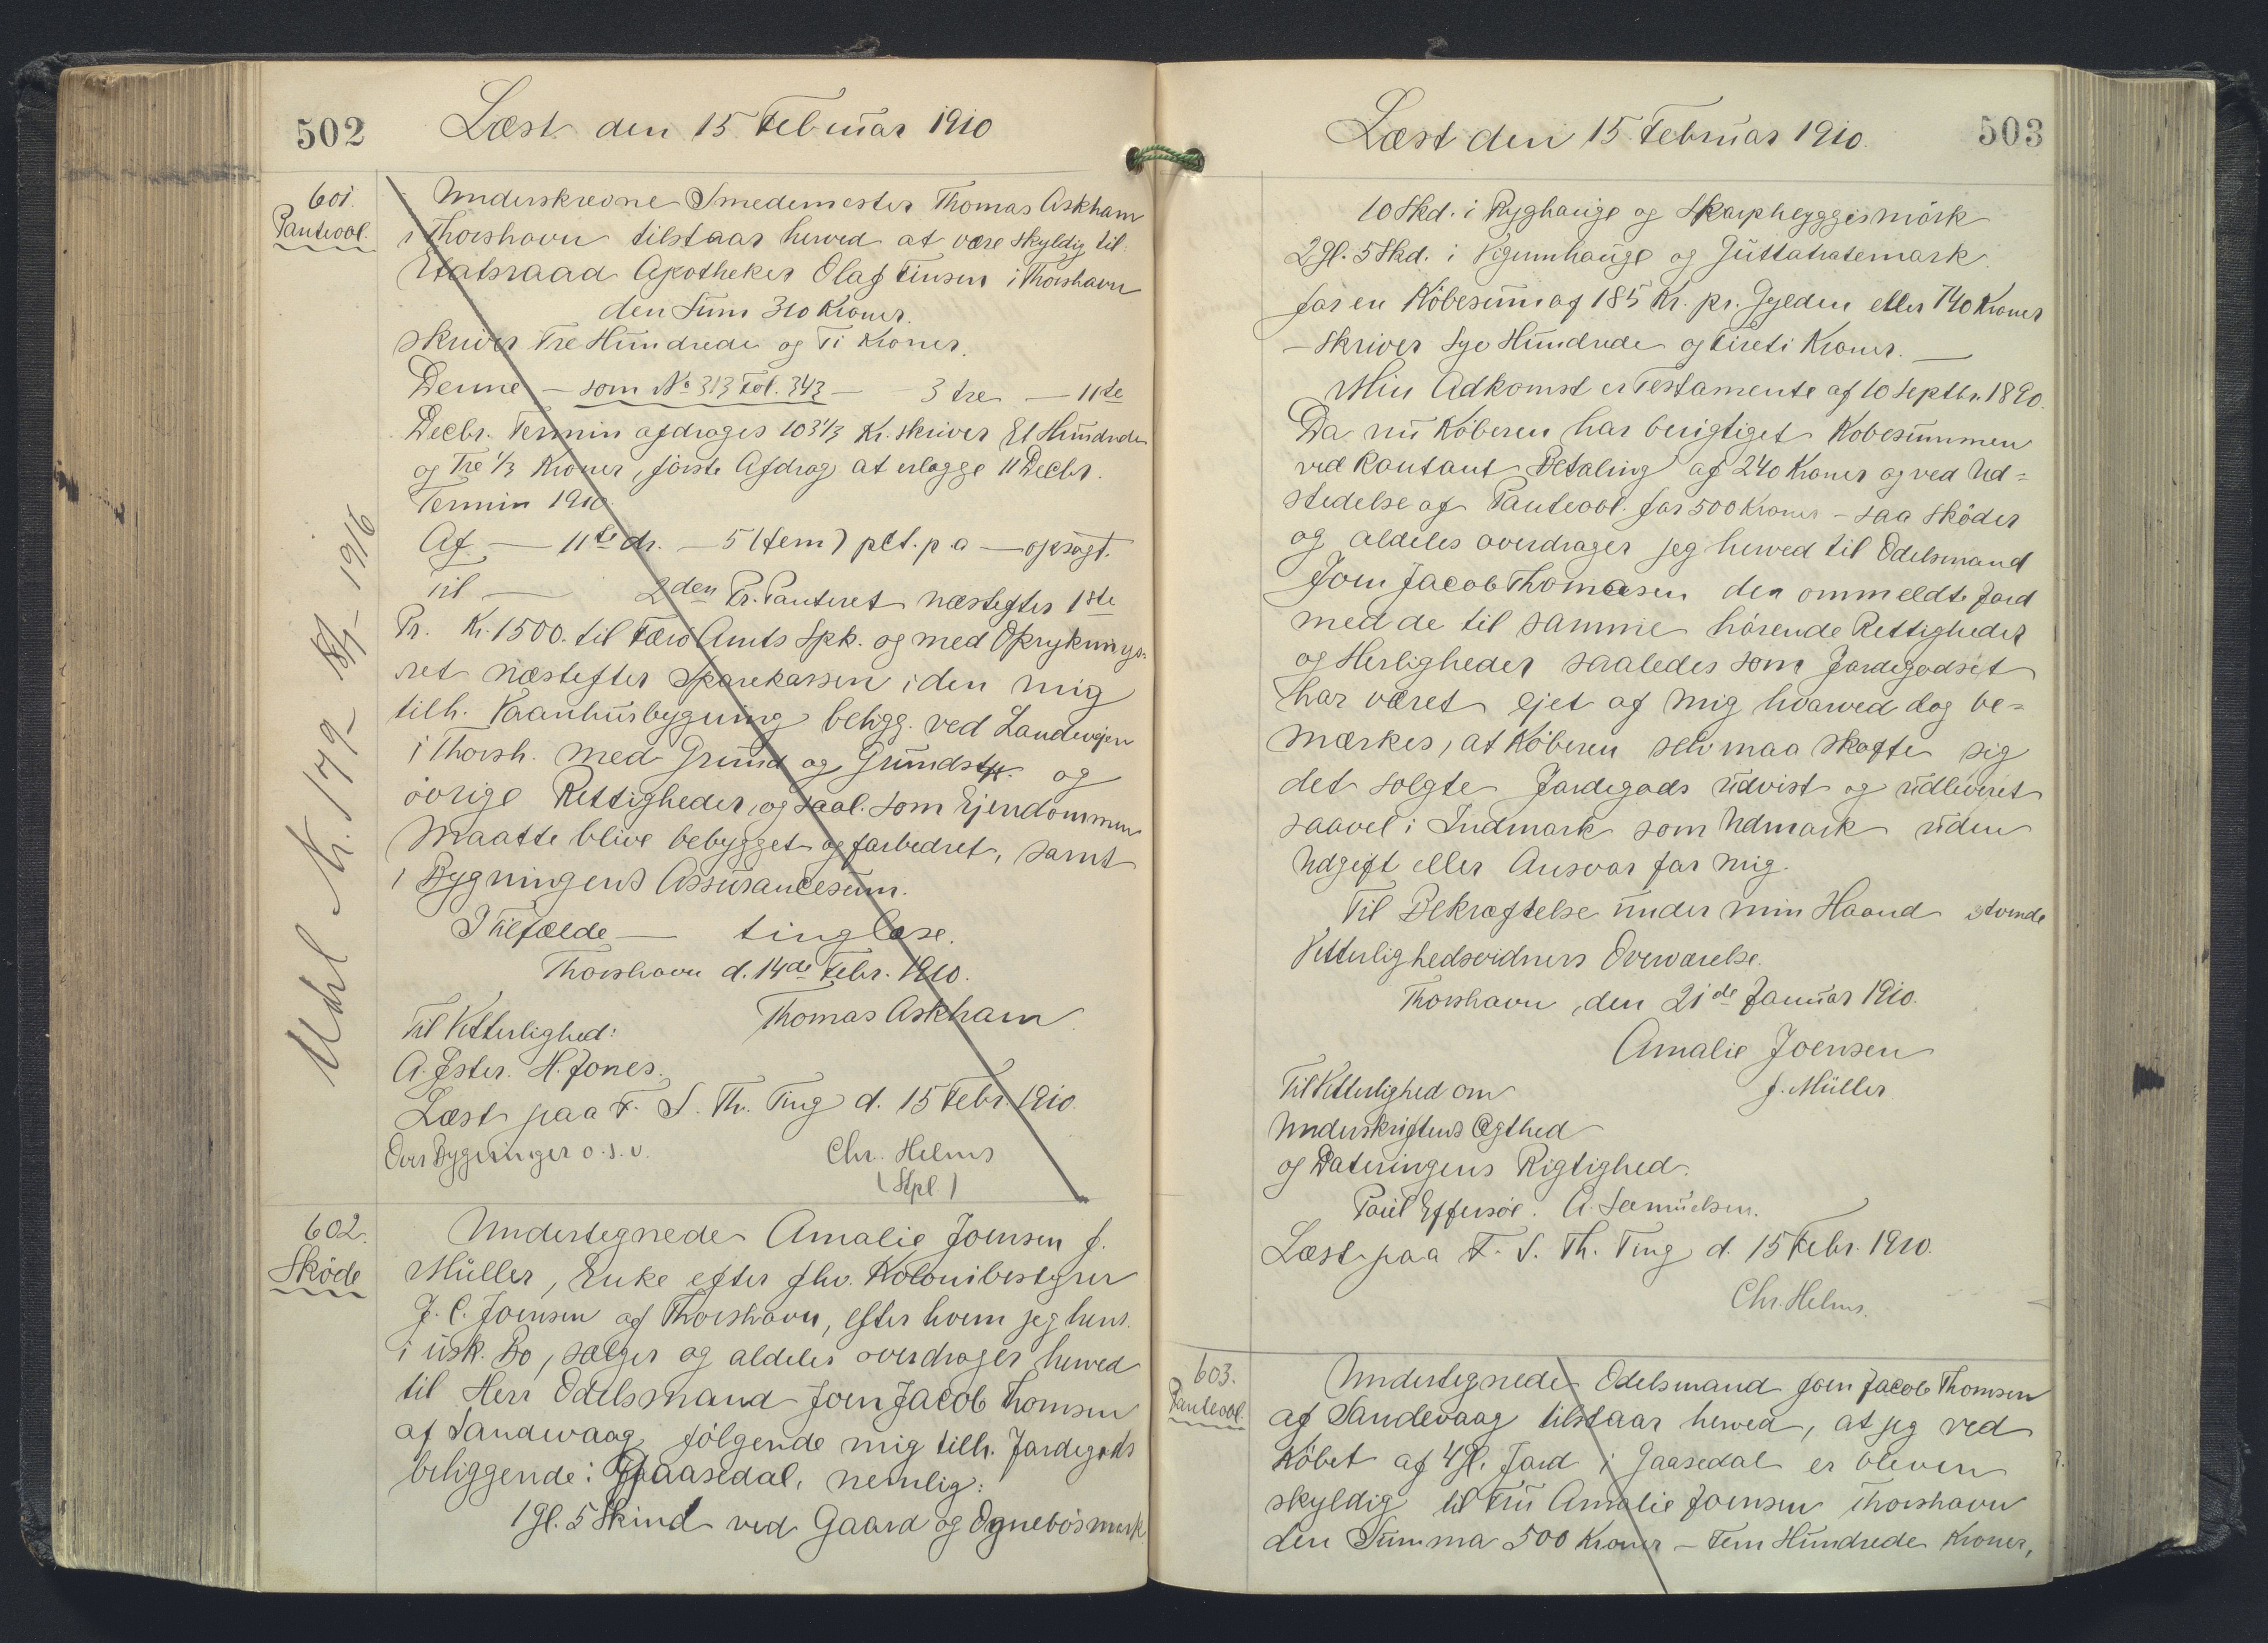 502
Læst den 15 Februar 1910
601.
Panteobl.
Underskrevne Smedemester Thomas Askham
i Thorshavn tilstaar herved at være skyldig til
Etatsraad Apotheker Olaf Finsen i Thorshavn
den Sum 310 Kroner.
skriver Tre Hundrede og Ti Kroner.
Denne — som No 313 Fol. 343 — 3 tre — 11te
Decbr. Termin afdrages 103 1/3 Kr. skriver Et Hundrede
og Tre 1/3 Kroner, første Afdrag at erlægge 11 Decbr.
Termin 1910
Af — 11te dr. — 5 (fem) pCt. p. a — opsagt.
Til — 2den Pr. Panteret næstefter 1ste
Pr. Kr. 1500. til Færø Amts Spk. og med Opryknings-
ret næstefter Sparekassen i den mig
tilh. Vaanhusbygning beligg. ved Landevejen
i Thorsh. med Grund og Grundstk. og
øvrige Rettigheder, og saal. som Ejendommen
maatte blive bebygget og forbedret, samt
i Bygningens Assurancesum.
I Tilfælde — tinglæse.
Thorshavn d. 14de Febr. 1910.
Thomas Askham
Til Vitterlighed:
A. Ester. H. Jones.
Læst paa F. S. Th. Ting d. 15 Febr. 1910.
Over Bygninger o. s. v.
Chr. Helms
(Stpl)
Udsl Nr. 179 1916
602.
Skøde
Undertegnede Amalie Joensen f.
Müller, Enke efter fhv. Kolonibestyrer
J. C. Joensen af Thorshavn, efter hvem jeg hens.
i usk. Bo, sælger og aldeles overdrager herved
til Herr Odelsmand Joen Jacob Thomsen
af Sandevaag følgende mig tilh. Jordegods
beliggende i Gaasedal, nemlig:
1 Gl. 5 Skind ved Gaard og Ognebøsmark
503
Læst den 15 Februar 1910.
10 Skd. i Ryghauge og Skarpheyggismørk
2 Gl. 5 Skd. i Vigumhauge og Guttatratemark
for en Købesum af 185 Kr. pr. Gylden eller 740 Kroner
— skriver Syv Hundrede og Fireti Kroner. —
Min Adkomst er Testamente af 10 Septbr. 1890.
Da nu Køberen har berigtiget Købesummen
ved Kontant Betaling af 240 Kroner og ved Ud-
stedelse af Panteobl. for 500 Kroner — saa skøder
og aldeles overdrager jeg herved til Odelsmand
Joen Jacob Thomasen den ommeldte Jord
med de til samme hørende Rettigheder
og Herligheder saaledes som Jordegodset
har været ejet af mig hvorved dog be-
mærkes, at Køberen selv maa skaffe sig
det solgte Jordegods udvist og udleveret
saavel i Indmark som Udmark uden
Udgift eller Ansvar for mig.
Til Bekræftelse under min Haand i tvende
Vitterlighedsvidners Overværelse.
Thorshavn, den 21de Januar 1910.
Amalie Joensen
f. Müller
Til Vitterlighed om
Underskriftens Ægthed
og Dateringens Rigtighed.
Poul Effersøe. A. Samuelsen.
Læst paa F. S. Th. Ting d. 15 Febr. 1910.
Chr. Helms.
603.
Panteobl.
Undertegnede Odelsmand Joen Jacob Thomsen
af Sandevaag tilstaar herved, at jeg ved
Købet af 4 Gl. Jord i Gaasedal er bleven
skyldig til Fru Amalie Joensen Thorshavn
den Summa 500 Kroner — Fem Hundrede Kroner,